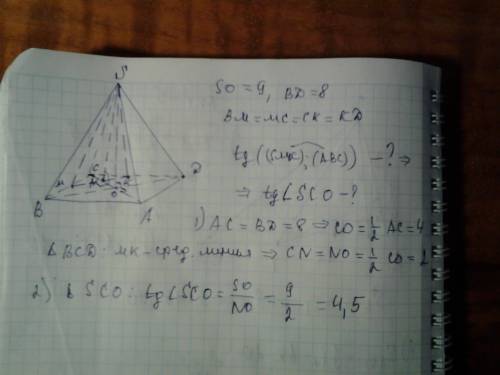 S
SO = 9, BD = 8
BM = MC = CK = KD
tg((SMK), (ABC)) - ? ⇒
⇒ tg∠SCO - ?
C
D
M
O
B
A
1) AC = BD = 8 ⇒ CO = 1/2 AC = 4
Δ BCD: MK - сред. линия ⇒ CN = NO = 1/2 CO = 2
2) Δ SCO: tg∠SCO = SO/NO = 9/2 = 4,5